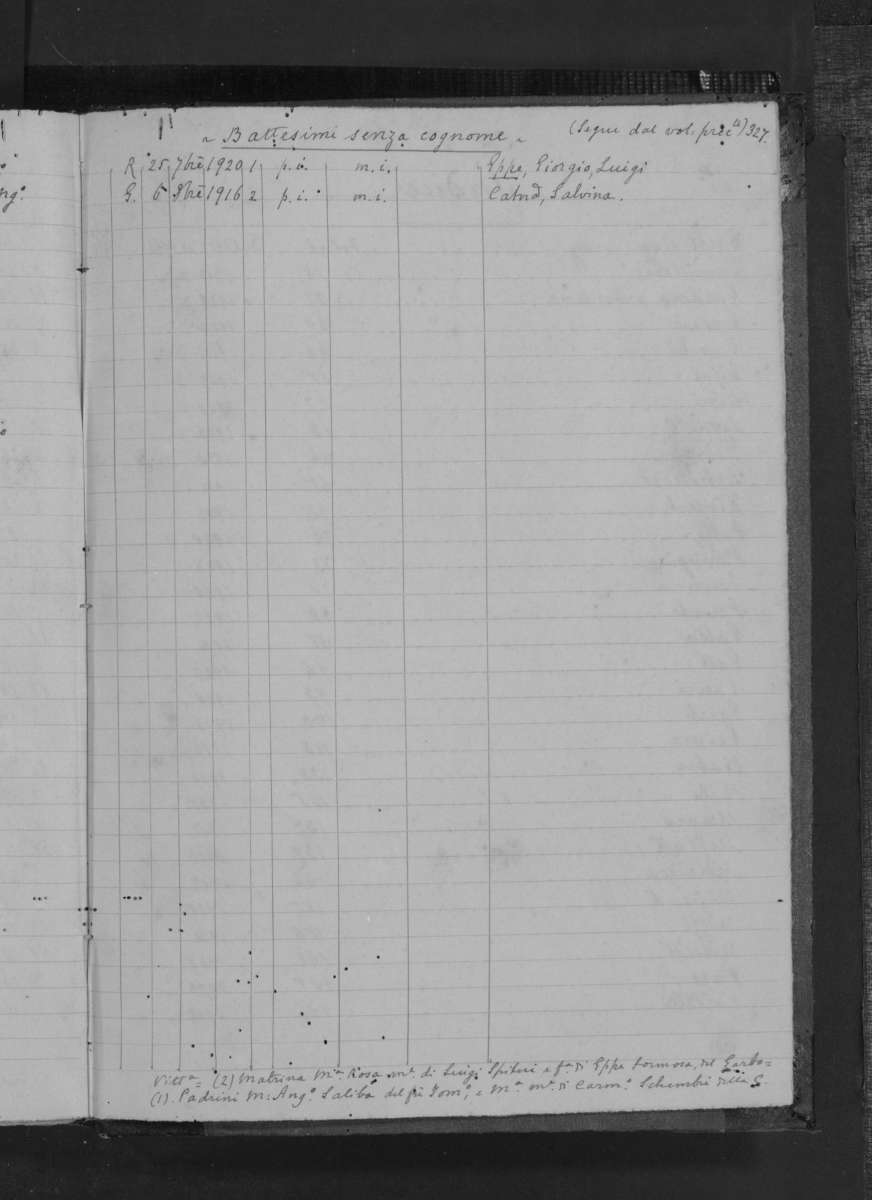 „ Battesimi senza cognome „ (Segue dal vol. prec.te) 327.
R. 25 7bre 1920 1 p.i. m.i. Eppe, Giorgio, Luigi
G. 6 8bre 1916 2 p.i. m.i. Catnd, Salvina.
Vitta = (2) Matrina Ma Rosa me. di Luigi Spiteri e fa di Eppe Formosa, del
(1). Padrini M: Ango. Saliba del fù Tomo; e Ma. me. di Carmo. Schembri della